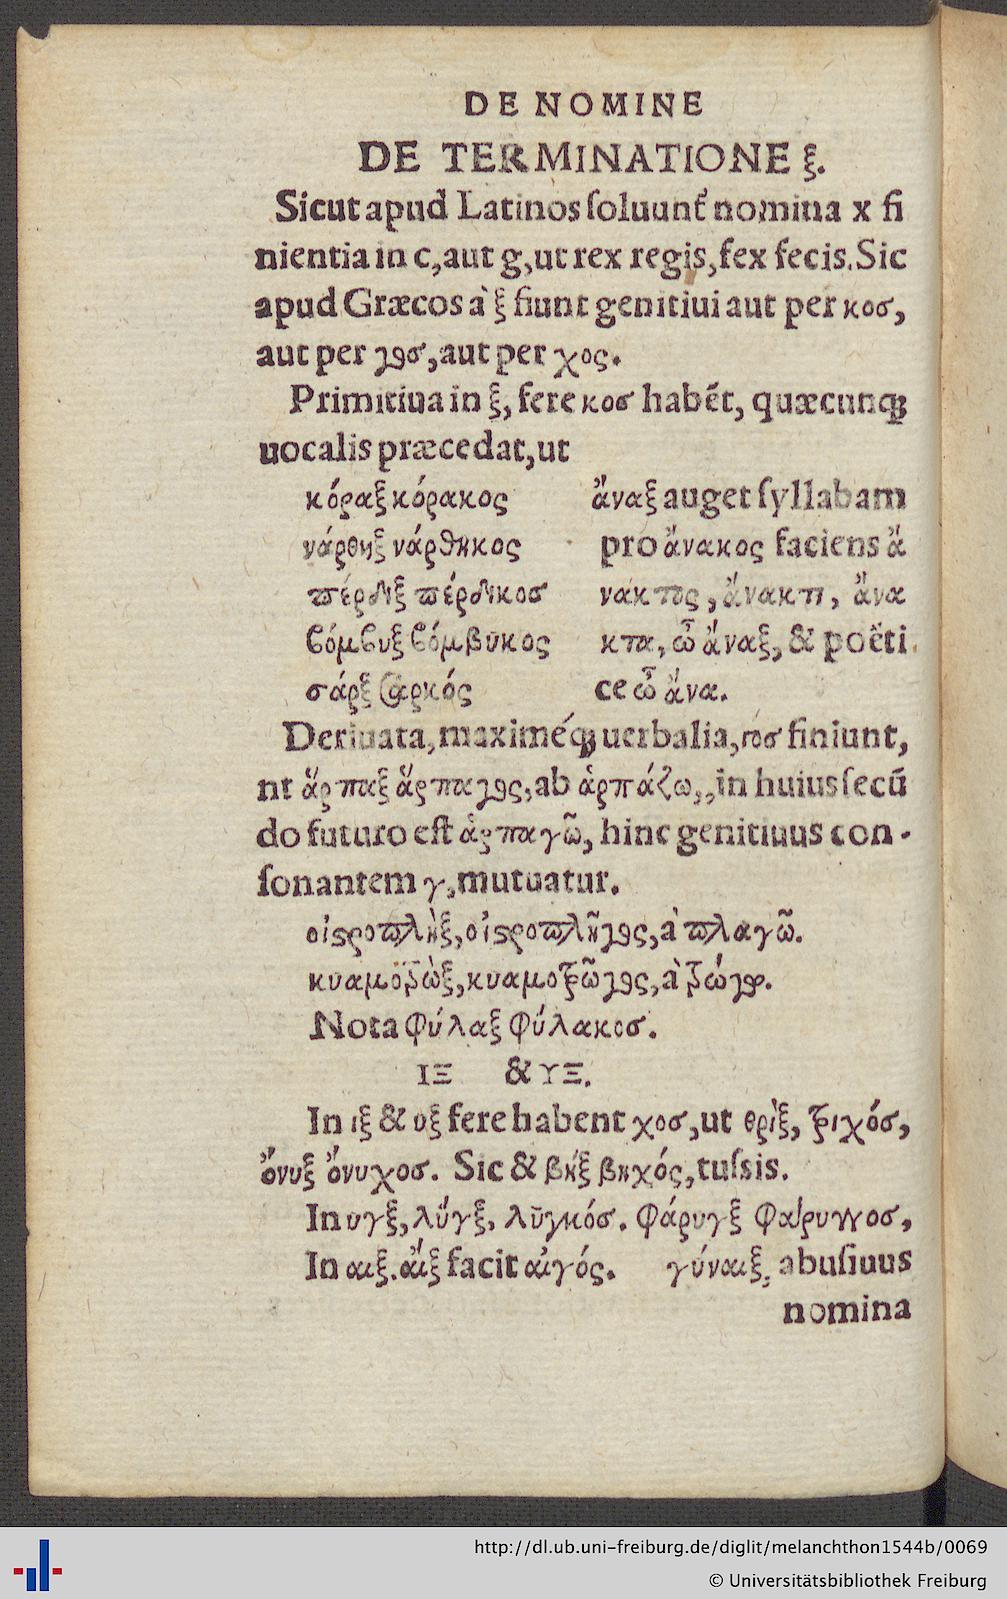 DE NOMINE
DE TERMINATIONE ξ.
Sicut apud Latinos ſoluunt᷑ nomina x fi
nientia in c, aut g, ut rex regis, fex fecis. Sic
apud Græcos à ξ fiunt genitiui aut per κοσ,
aut per γοσ, aut per χος.
Primitiua in ξ, fere κοσ habẽt, quæcunqꝫ
uocalis præcedat, ut
κόραξ κόρακος
νάρθηξ νάρθηκος
πέρδιξ πέρδικοσ
βόμβυξ βόμβῡκος
σάρξ σαρκός
ἄναξ auget ſyllabam
pro ἄνακος faciens ἄ
νακτος, ἄνακτι, ἄνα
κτα, ὦ ἄναξ, & poëti
ce ὦ ἄνα.
Deriuata, maximéqꝫ uerbalia, γοσ finiunt,
nt ἅρπαξ ἅρπαγος, ab ἁρπάζω,, in huius ſecũ
do futuro eſt ἁρπαγῶ, hinc genitiuus con-
ſonantem γ, mutuatur.
οἰϛροπλὴξ, οἰϛροπλῆγος, à πλαγῶ.
κυαμοτρὼξ, κυαμοτρῶγος, à τρώγω.
Nota φύλαξ φύλακοσ.
ΙΞ & ΥΞ.
In ιξ & υξ fere habent χοσ, ut θρὶξ, τριχόσ,
ὄνυξ ὄνυχοσ. Sic & βήξ βηχός, tuſsis.
In υγξ, λύγξ, λῡγκόσ. φάρυγξ φάρυγγοσ,
In αιξ. αἲξ facit αἰγός. γύναιξ, abuſiuus
nomina
http://dl.ub.uni-freiburg.de/diglit/melanchthon1544b/0069
© Universitätsbibliothek Freiburg